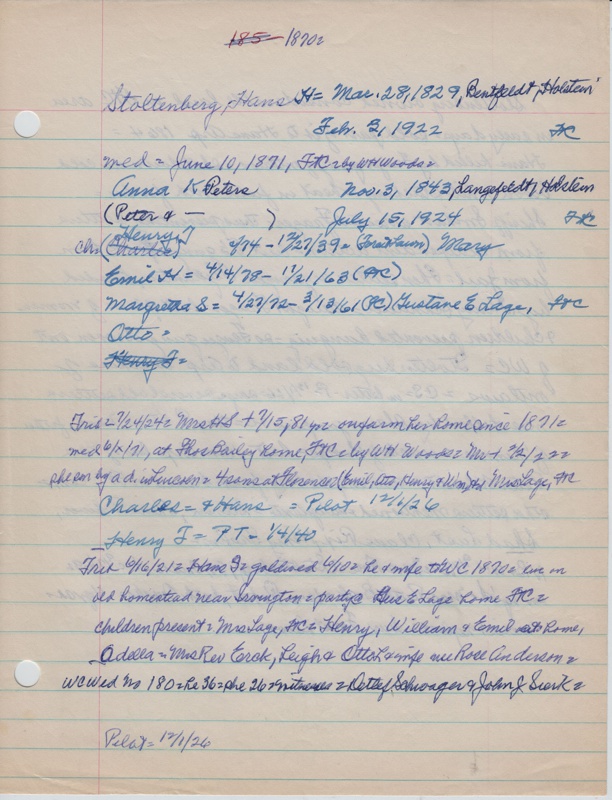 185 1870=
Stoltenberg, Hans H= Mar. 28, 1829, Bentfeldt, Holstein
Feb. 3, 1922 FC
med = June 10, 1871, FtC = by WH Woods =
Anna K Peters Nov. 3, 1843, Langefeldt, Holstein
(Peter & — ) July 15, 1924 FtC
Henry T
chn (Charlie) 4/74 - 12/27/39 = Mary
Emil H = 4/14/78 - 11/21/63 (FtC)
Margretha S = 4/27/72 - 3/13/61 (FC) Gustave E Lage, FtC
Otto =
Henry F =
Trib = 7/24/24 = Mrs HS + 7/15, 81 yr on farm her home since 1871 =
med 6/10/71, at Thos Bailey home, FtC = by WH Woods = Mr + 2/2/22 =
she en by a d. in Lincoln = 4 sons at Florence (Emil, Otto, Henry & Wm) & Mrs Lage, FtC
Charles = & Hans = Pilot 12/1/26
Henry F = PT - 1/4/40
Trib 6/16/21 = Hans S = gold wed 6/10 = he & wife to WC 1870 = em on
old homestead near Irvington = party @ Gus E Lage home FtC =
children present = Mrs Lage, FtC = Henry, William & Emil at home,
Adella = Mrs Rev Erck, Leigh & Otto L & wife nee Rose Anderson =
WC Wed No 180 = he 36 = she 26 = witnesses = Detlef Schwager & John J Sierk =
Pilot = 12/1/26